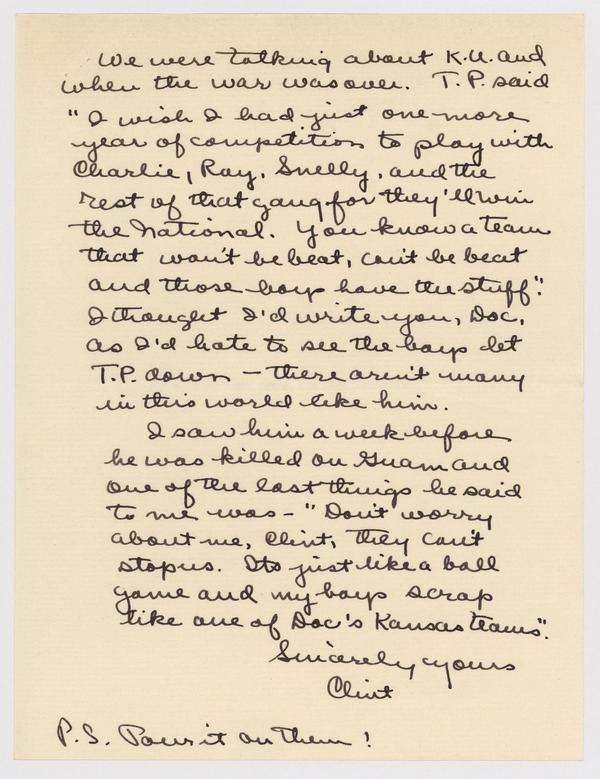 We were talking about K.U. and
when the war was over. T.P. said
"I wish I had just one more
year of competition to play with
Charlie, Ray, Snelly, and the
rest of that gang for they'll win
the National. You know a team
that won't be beat, can't be beat
and those boys have the stuff".
I thought I'd write you, Doc,
as I'd hate to see the boys let
T.P. down – there aren't many
in this world like him.
I saw him a week before
he was killed on Guam and
one of the last things he said
to me was – "Don't worry
about me, Clint, they can't
stop us. Its just like a ball
game and my boys scrap
like one of Doc's Kansas teams".
Sincerely yours
Clint
P.S. Pour it on them!